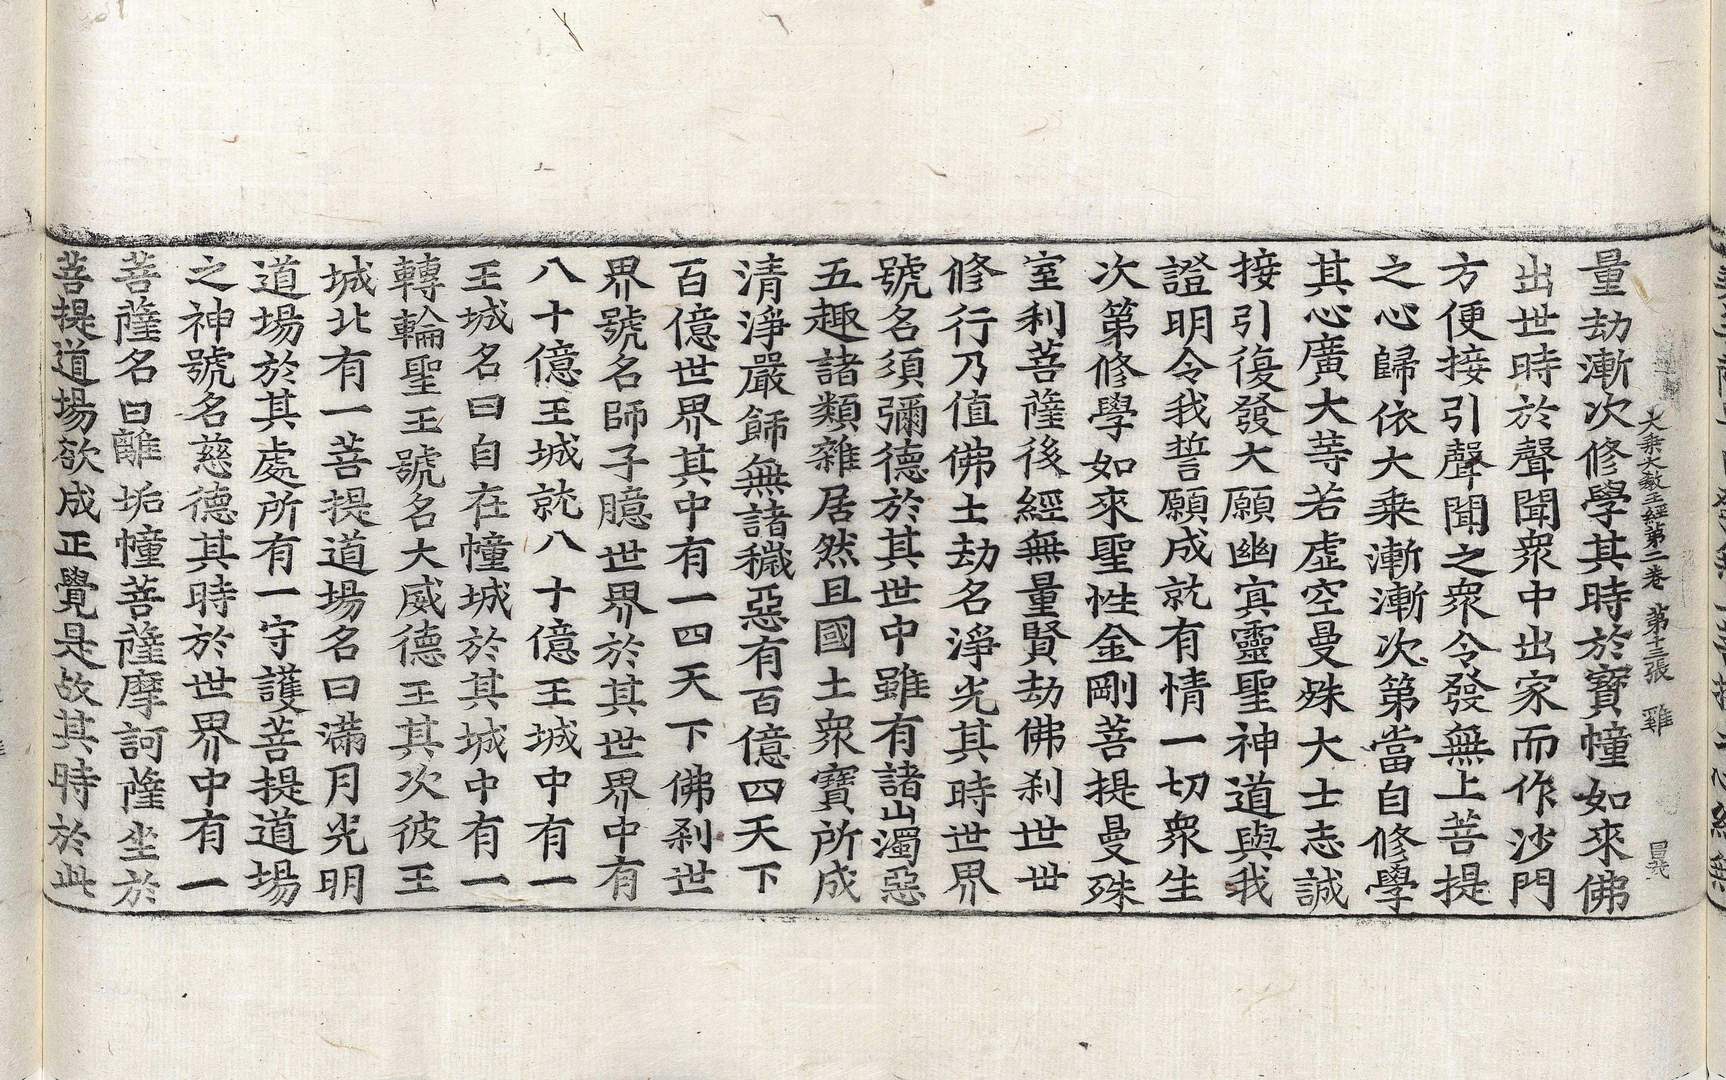 大乘大教王經第二卷 第十三張 雞
量劫漸次修學其時於寶幢如來佛
出世時於聲聞衆中出家而作沙門
方便接引聲聞之衆令發無上菩提
之心歸依大乘漸漸次第當自修學
其心廣大䓁若虛空曼殊大士志誠
接引復發大願幽㝠靈聖神道與我
證明令我誓願成就有情一切衆生
次第修學如來聖性金剛菩提曼殊
室利菩薩後經無量賢劫佛刹世世
修行乃值佛土劫名淨光其時世界
號名須彌德於其世中雖有諸山濁惡
五趣諸類雜居然且國土衆寶所成
清淨嚴飾無諸穢惡有百億四天下
百億世界其中有一四天下佛刹世
界號名師子臆世界於其世界中有
八十億王城就八十億王城中有一
王城名曰自在幢城於其城中有一
轉輪聖王號名大威德王其次彼王
城北有一菩提道場名曰滿月光明
道場於其處所有一守護菩提道場
之神號名慈德其時於世界中有一
菩薩名曰離垢幢菩薩摩訶薩坐於
菩提道場欲成正覺是故其時於此